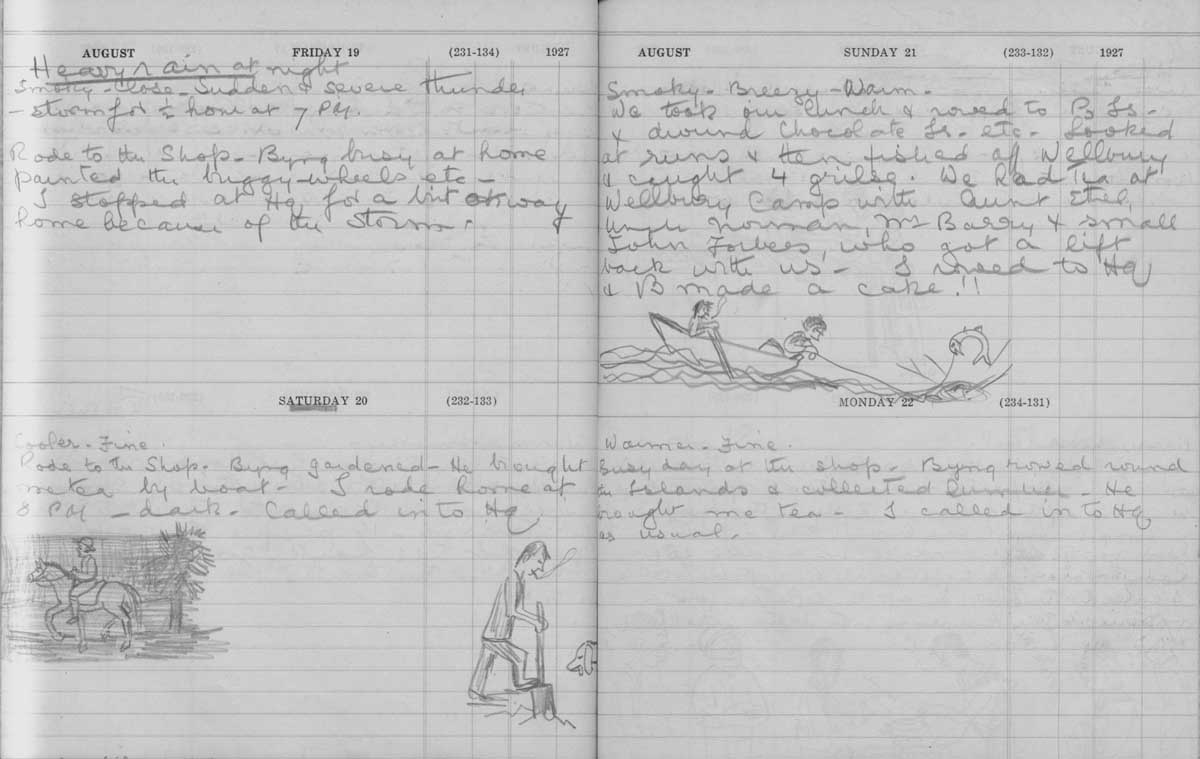 AUGUST FRIDAY 19 (231-134) 1927
Heavy rain at night
Smoky - Close - Sudden & severe thunder
- storm for ½ hour at 7 PM.
Rode to the Shop - Byng busy at home
painted the buggy-wheels etc -
I stopped at Hq for a bit on way
home because of the storm.
SATURDAY 20 (232-133)
Cooler - Fine.
Rode to the Shop. Byng gardened - He brought
me tea by boat - I rode home at
8 PM - dark. Called in to Hq
AUGUST SUNDAY 21 (233-132) 1927
Smoky - Breezy - Warm -
We took our lunch & rowed to B Is -
& around Chocolate Is. etc - Looked
at runs & then fished off Wellbury
& caught 4 grilse. We had Tea at
Wellbury Camp with Aunt Ethel,
Uncle Norman, Mr Barry & small
John Forbes, who got a lift
back with us - I rowed to Hq
& B made a cake.!!
MONDAY 22 (234-131)
Warmer - Fine.
Busy day at the shop - Byng rowed round
the Islands & collected lumber - He
brought me tea - I called in to Hq
as usual.